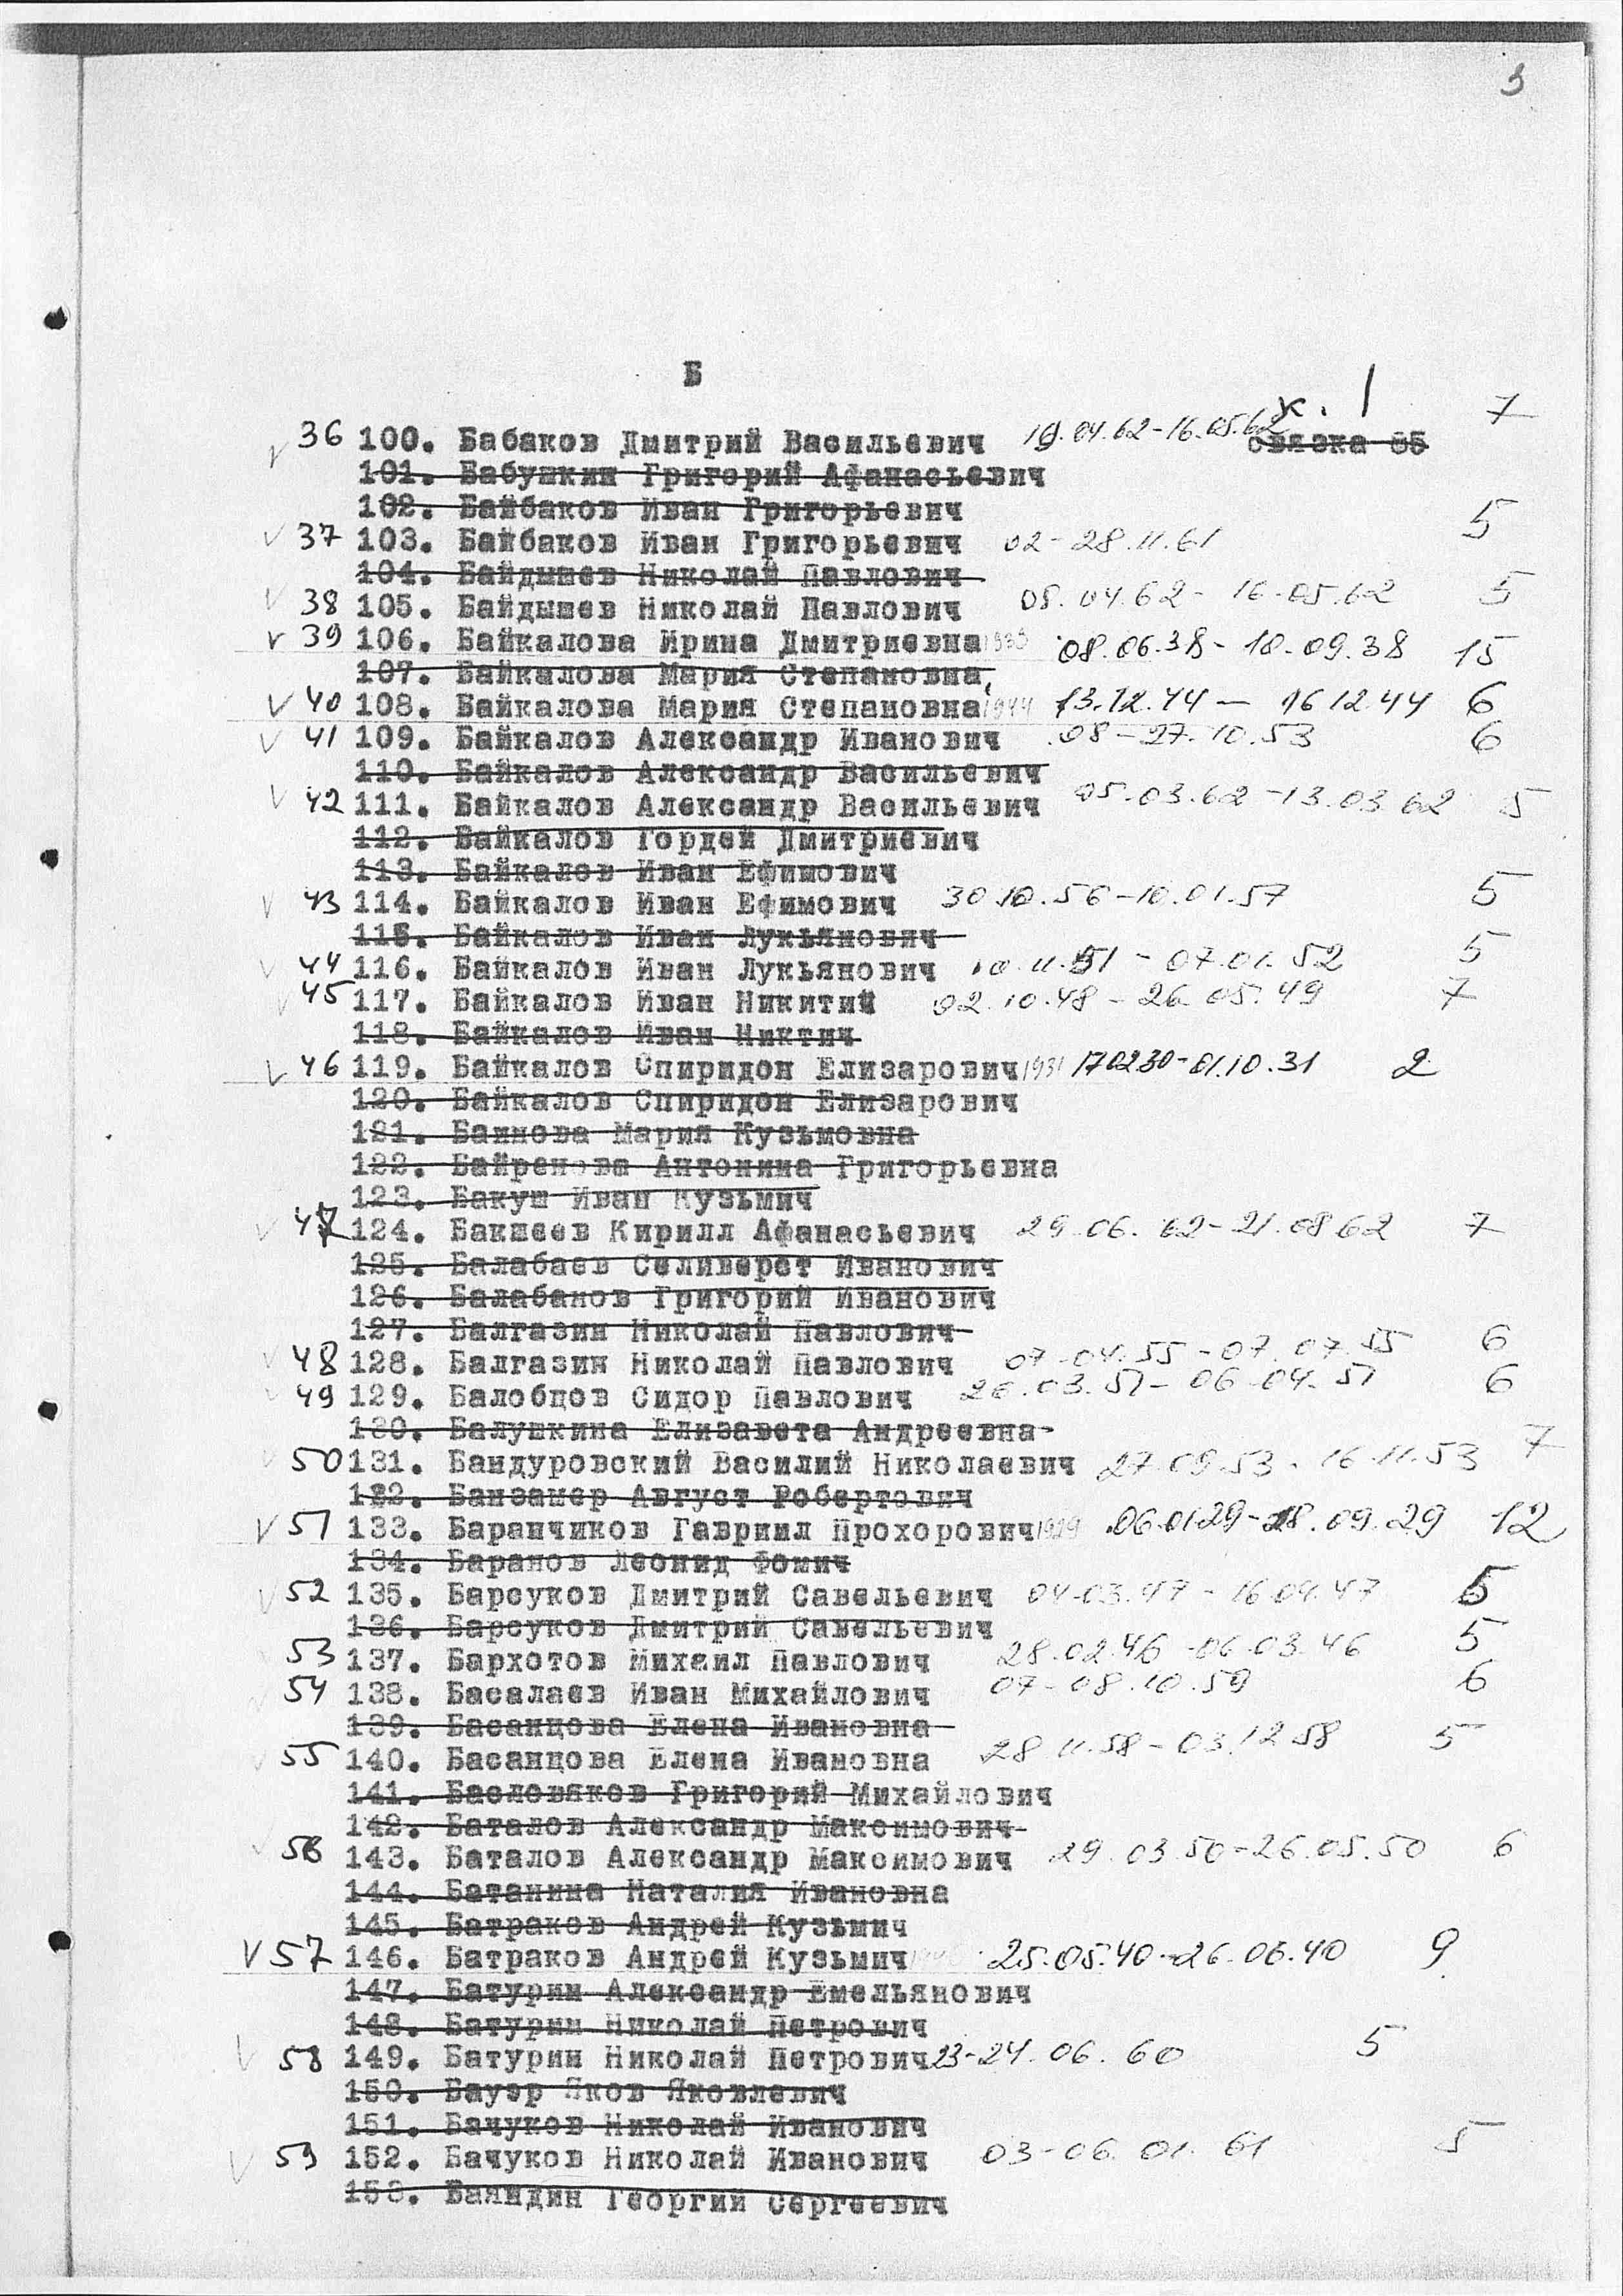 3
Б
к. 1 7
36 100. Бабаков Дмитрий Васильевич 19.04.62-16.05.62 связка 65
101. Бабушкин Григорий Афанасьевич
102. Байбаков Иван Григорьевич
37 103. Байбаков Иван Григорьевич 02-28.11.61 5
104. Байдышев Николай Павлович
38 105. Байдышев Николай Павлович 08.04.62-16.05.62 5
39 106. Байкалова Ирина Дмитриевна 08.06.38-10.09.38 15
107. Байкалова Мария Степановна
40 108. Байкалова Мария Степановна 1944 13.12.44 - 16 12.44 6
41 109. Байкалов Александр Иванович 08-27.10.53 6
110. Байкалов Александр Васильевич
42 111. Байкалов Александр Васильевич 05.03.62-13.03.62 5
112. Байкалов Гордей Дмитриевич
113. Байкалов Иван Ефимович
43 114. Байкалов Иван Ефимович 30.10.56-10.01.57 5
115. Байкалов Иван Лукьянович
44 116. Байкалов Иван Лукьянович 10.11.51-07.01.52 5
45 117. Байкалов Иван Никитич 02.10.48-26.05.49 7
118. Байкалов Иван Никтич
46 119. Байкалов Спиридон Елизарович 1931 170230-01.10.31 2
120. Байкалов Спиридон Елизарович
121. Баинова Мария Кузьмовна
122. Байренова Антонина Григорьевна
123. Бакуш Иван Кузьмич
47 124. Бакшеев Кирилл Афанасьевич 29.06.62-21.08 62 7
125. Балабаев Селиверст Иванович
126. Балабанов Григорий Иванович
127. Балгазин Николай Павлович
48 128. Балгазин Николай Павлович 07-04.55-07.07.55 6
49 129. Балобцов Сидор Павлович 26.03.51-06-04.51 6
130. Балушкина Елизавета Андреевна
50 131. Бандуровский Василий Николаевич 27.09.53-16.11.53 7
132. Банзамер Август Робертович
51 133. Баранчиков Гавриил Прохорович 1929 06.01 29-28.09.29 12
134. Баранов Леонид Фомич
52 135. Барсуков Дмитрий Савельевич 04.03.47-16.04.47 5
136. Барсуков Дмитрий Савельевич
53 137. Бархотов Михаил Павлович 28.02.46-06.03.46 5
54 138. Басалаев Иван Михайлович 07-08.10.59 6
139. Басанцова Елена Ивановна
55 140. Басанцова Елена Ивановна 28 11.58-03.12 58 5
141. Басловяков Григорий Михайлович
142. Баталов Александр Максимович
56 143. Баталов Александр Максимович 29.03.50-26.05.50 6
144. Батанина Наталия Ивановна
145. Батраков Андрей Кузьмич
57 146. Батраков Андрей Кузьмич 25.05.40-26.06.40 9
147. Батурин Александр Емельянович
148. Батурин Николай Петрович
58 149. Батурин Николай Петрович 23-24.06.60 5
150. Бауэр Яков Яковлевич
151. Бачуков Николай Иванович
59 152. Бачуков Николай Иванович 03-06.01.61 5
153. Баяндин Георгий Сергеевич